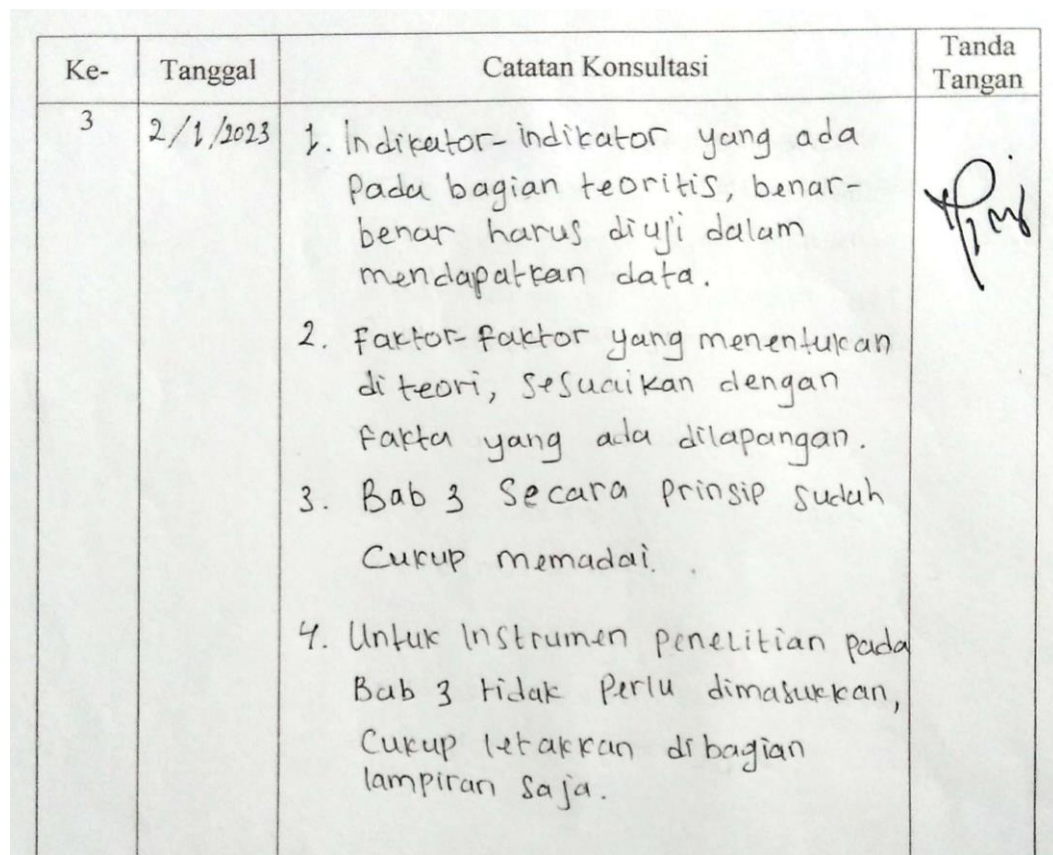 Ke- Tanggal Catatan Konsultasi Tanda
Tangan
3 2/1/2023 1. Indikator-indikator yang ada
pada bagian teoritis, benar-
benar harus diuji dalam
mendapatkan data.
2. Faktor-faktor yang menentukan
di teori, sesuaikan dengan
fakta yang ada dilapangan.
3. Bab 3 Secara Prinsip sudah
Cukup memadai.
4. Untuk Instrumen penelitian pada
Bab 3 tidak Perlu dimasukkan,
Cukup letakkan dibagian
lampiran saja.